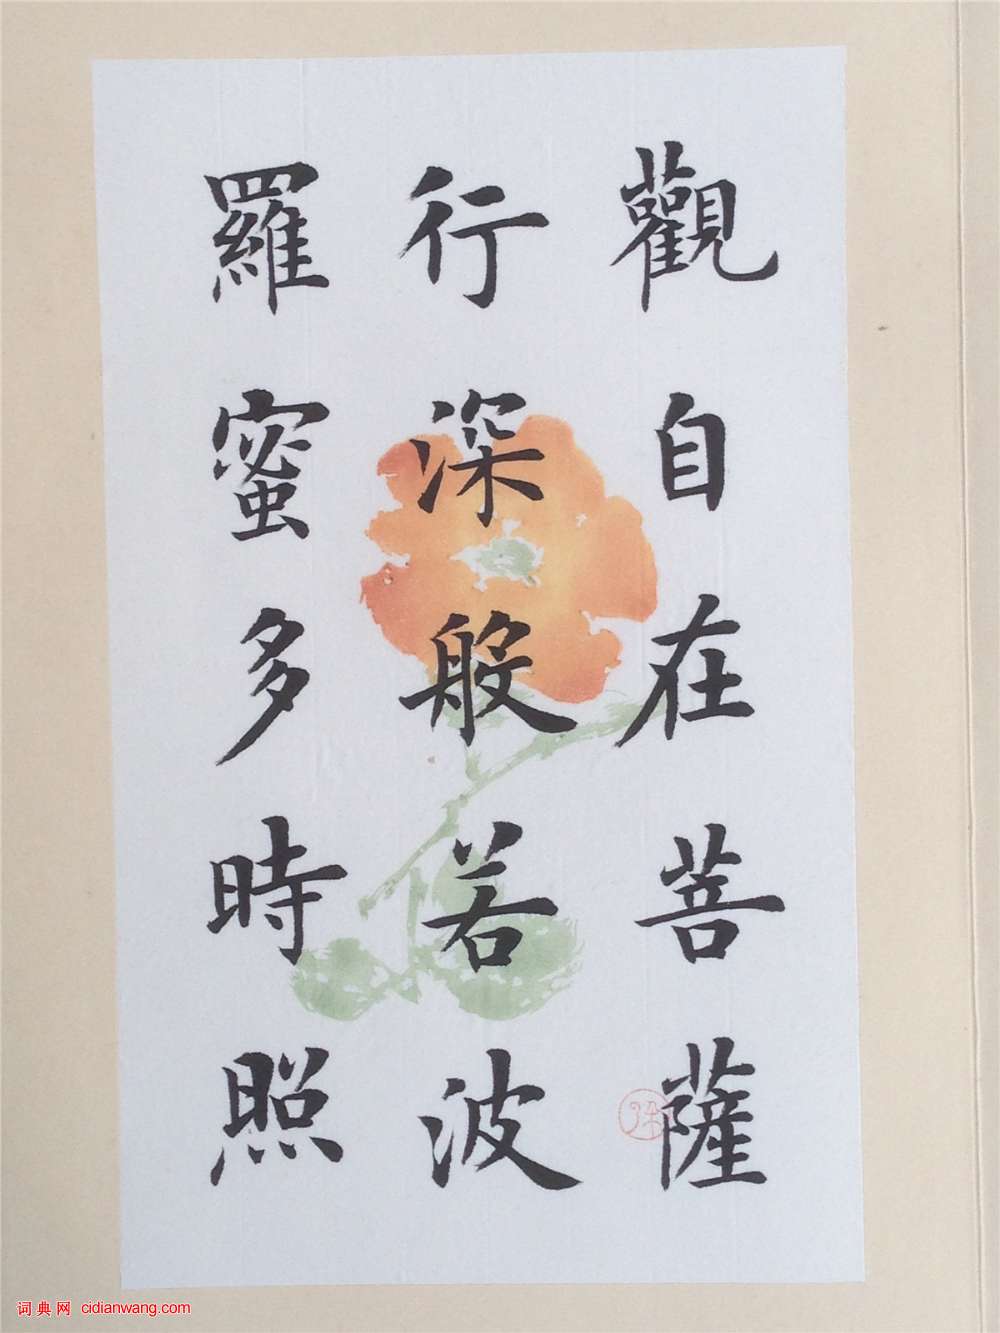 觀自在菩薩
行深般若波
羅蜜多時照
词典网 cidianwang.com